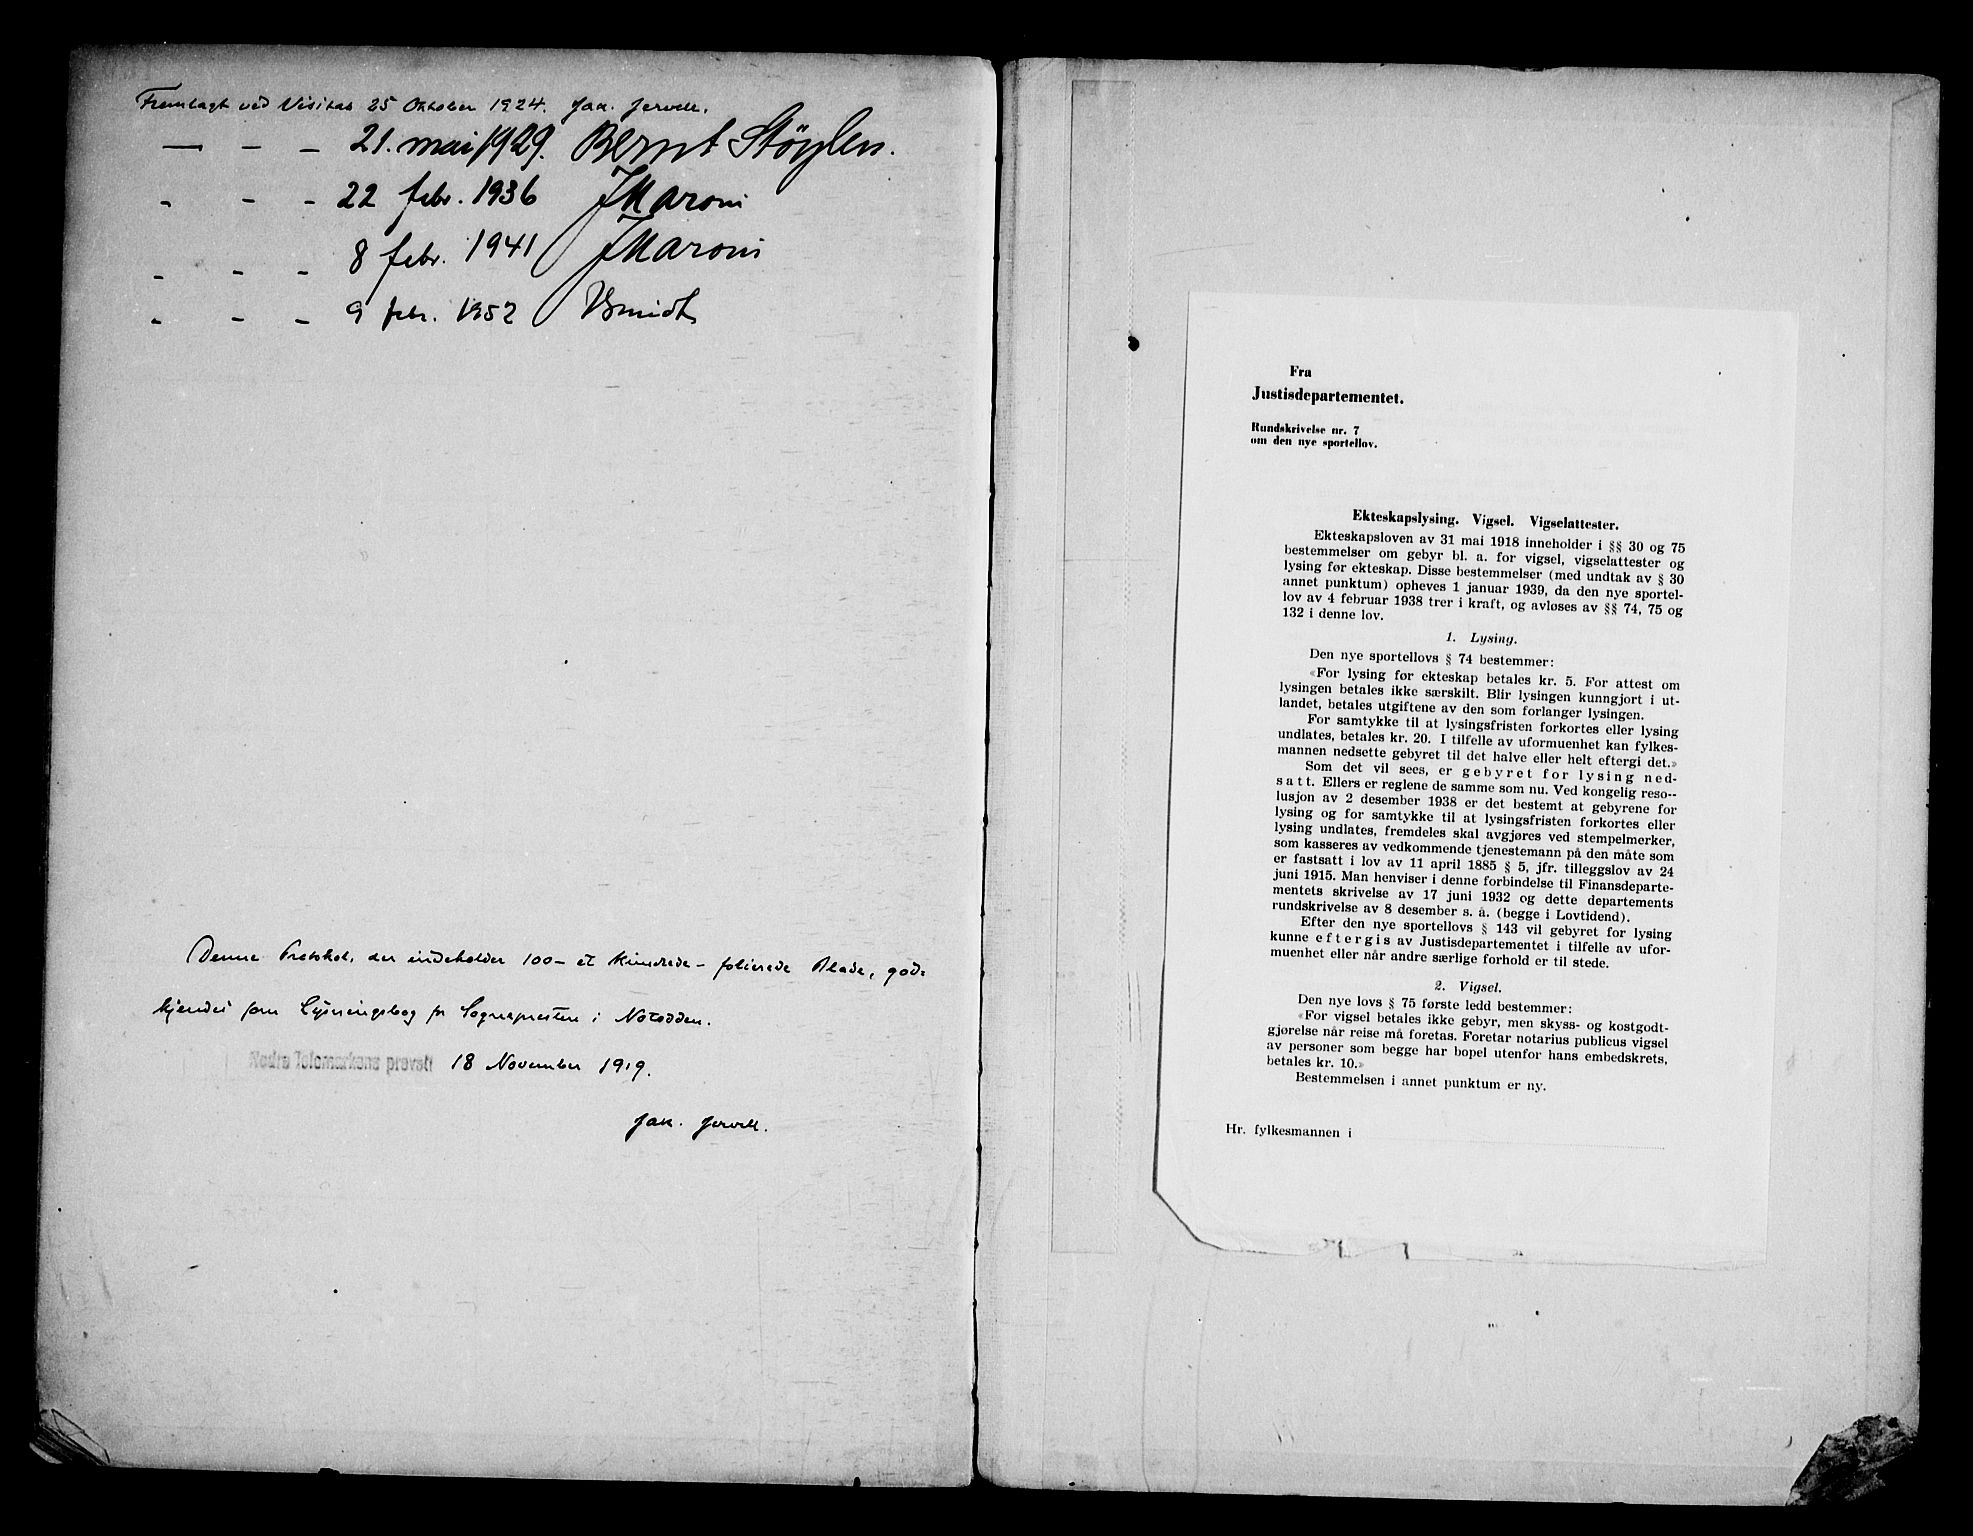 Fremlagt ved Visitas 25 Oktober 1924. Jak. Jervell.
— - - 21. mai 1929. Bernt Støylen.
- - - 22 febr. 1936 J Maroni
- - - 8 febr. 1941 J Maroni
- - - 9 febr. 1952
Denne Protokol, der indeholder 100 – et hundrede – folierede Blade, god-
kjendes som Lysningsbog for Sognepresten i Notodden.
18 November 1919.
Jak. Jervell.
Fra
Justisdepartementet.
Rundskrivelse nr. 7
om den nye sportellov.
Ekteskapslysing. Vigsel. Vigselattester.
Ekteskapsloven av 31 mai 1918 inneholder i §§ 30 og 75
bestemmelser om gebyr bl. a. for vigsel, vigselattester og
lysing før ekteskap. Disse bestemmelser (med undtak av § 30
annet punktum) opheves 1 januar 1939, da den nye sportel-
lov av 4 februar 1938 trer i kraft, og avløses av §§ 74, 75 og
132 i denne lov.
1. Lysing.
Den nye sportellovs § 74 bestemmer:
«For lysing før ekteskap betales kr. 5. For attest om
lysingen betales ikke særskilt. Blir lysingen kunngjort i ut-
landet, betales utgiftene av den som forlanger lysingen.
For samtykke til at lysingsfristen forkortes eller lysing
undlates, betales kr. 20. I tilfelle av uformuenhet kan fylkes-
mannen nedsette gebyret til det halve eller helt eftergi det.»
Som det vil sees, er gebyret for lysing ned-
satt. Ellers er reglene de samme som nu. Ved kongelig reso-
lusjon av 2 desember 1938 er det bestemt at gebyrene for
lysing og for samtykke til at lysingsfristen forkortes eller
lysing undlates, fremdeles skal avgjøres ved stempelmerker,
som kasseres av vedkommende tjenestemann på den måte som
er fastsatt i lov av 11 april 1885 § 5, jfr. tilleggslov av 24
juni 1915. Man henviser i denne forbindelse til Finansdeparte-
mentets skrivelse av 17 juni 1932 og dette departements
rundskrivelse av 8 desember s. å. (begge i Lovtidend).
Efter den nye sportellovs § 143 vil gebyret for lysing
kunne eftergis av Justisdepartementet i tilfelle av ufor-
muenhet eller når andre særlige forhold er til stede.
2. Vigsel.
Den nye lovs § 75 første ledd bestemmer:
«For vigsel betales ikke gebyr, men skyss- og kostgodt-
gjørelse når reise må foretas. Foretar notarius publicus vigsel
av personer som begge har bopel utenfor hans embedskrets,
betales kr. 10.»
Bestemmelsen i annet punktum er ny.
Hr. fylkesmannen i